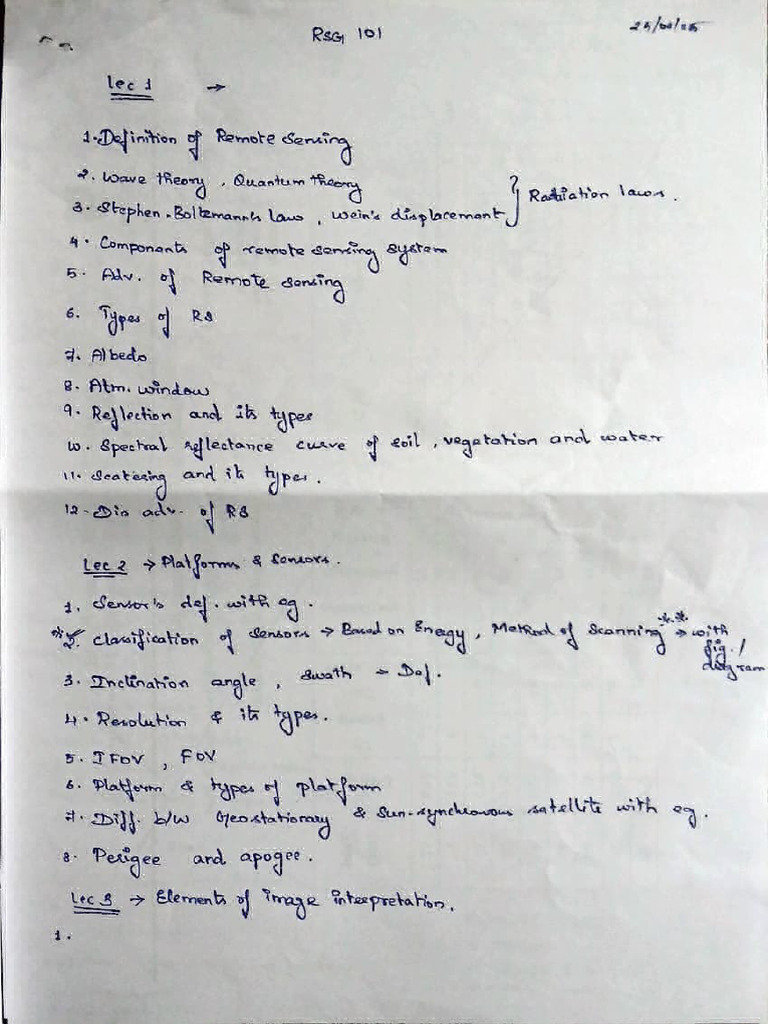 RSG 101
Lec 1 →
1. Definition of Remote Sensing
2. Wave theory, Quantum theory } Radiation laws.
3. Stephen-Boltzmann's law, Wein's displacement
4. Components of remote sensing system
5. Adv. of Remote sensing
6. Types of RS
7. Albedo
8. Atm. window
9. Reflection and its types
10. Spectral reflectance curve of soil, vegetation and water
11. Scatering and its types.
12. Dis adv. of RS
Lec 2 → Platforms & Sensors.
1. Sensor's def. with eg.
**2. Classification of Sensors → Based on Energy, Method of Scanning ** → with fig./ diagram
3. Inclination angle, Swath → Def.
4. Resolution & its types.
5. IFOV, FOV
6. Platform & types of platform
7. Diff. b/w Geostationary & Sun-synchronous satellite with eg.
8. Perigee and apogee.
Lec 3 → Elements of image interpretation.
1.